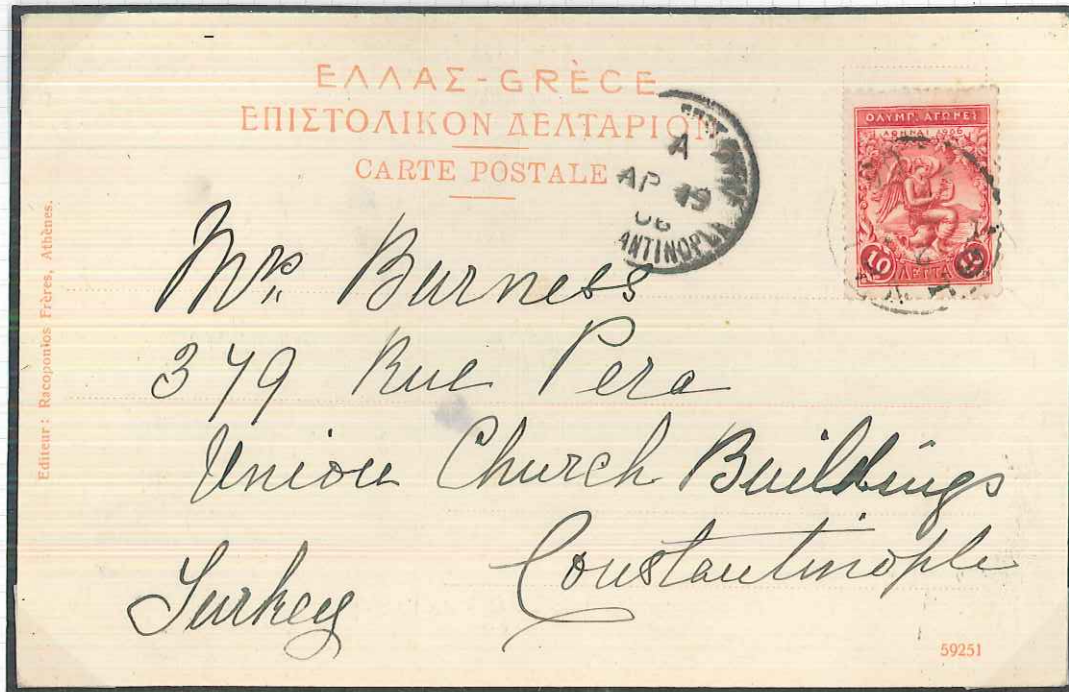 ΕΛΛΑΣ-GRÈCE
ΕΠΙΣΤΟΛΙΚΟΝ ΔΕΛΤΑΡΙΟΝ
CARTE POSTALE
A
AP 19
06
ANTINOPLE
ΟΛΥΜΠ. ΑΓΩΝΕΣ
ΑΘΗΝΑΙ 1906
10 ΛΕΠΤΑ 10
Mr. Burness
379 Rue Pera
Union Church Buildings
Constantinople
Turkey
Editeur: Racoponlos Frères, Athènes.
59251